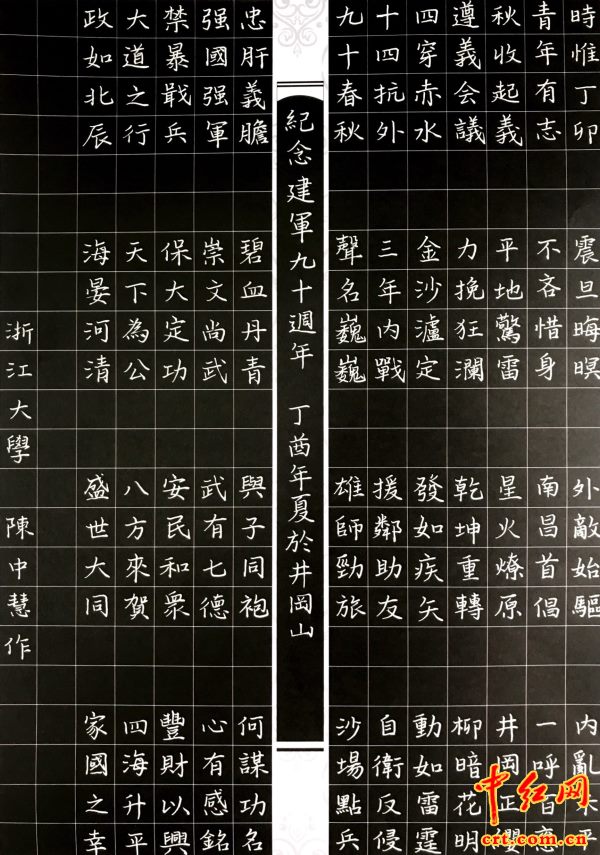 時惟丁卯 震旦晦暝 外敵始驅 內亂
青年有志 不吝惜身 南昌首倡 一呼百
秋收起義 平地驚雷 星火燎原 井岡正纓
遵義会議 力挽狂瀾 乾坤重轉 柳暗花明
四穿赤水 金沙瀘定 發如疾矢 動如雷霆
十四抗外 三年內戰 援鄰助友 自衛反侵
九十春秋 聲名巍巍 雄師勁旅 沙場點兵
紀念建軍九十週年 丁酉年夏於井岡山
忠肝義膽 碧血丹青 與子同袍 何謀功名
强國强軍 崇文尚武 武有七德 心有感銘
禁暴戢兵 保大定功 安民和衆 豐財以興
大道之行 天下為公 八方來賀 四海升平
政如北辰 海晏河清 盛世大同 家國之幸
浙江大學 陳中慧作
中红网
crt.com.cn